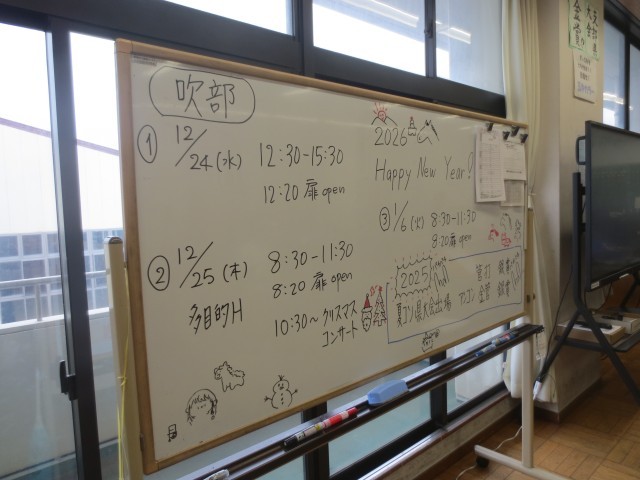 吹部
① 12/24(水) 12:30-15:30
12:20 扉open
② 12/25(木) 8:30-11:30
8:20 扉open
多目的H
10:30~ クリスマス
コンサート
2026
Happy New Year!
③ 1/6(火) 8:30-11:30
8:20 扉open
2025
夏コン県大会出場
アンコン
金賞